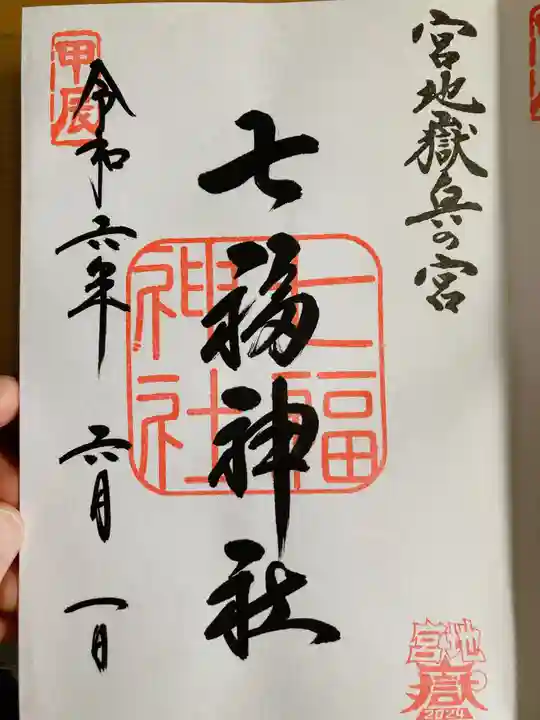 宮地嶽奥の宮
七福神社
七福
神社
令和六年 六月 一日
甲辰
宮地
嶽
2024